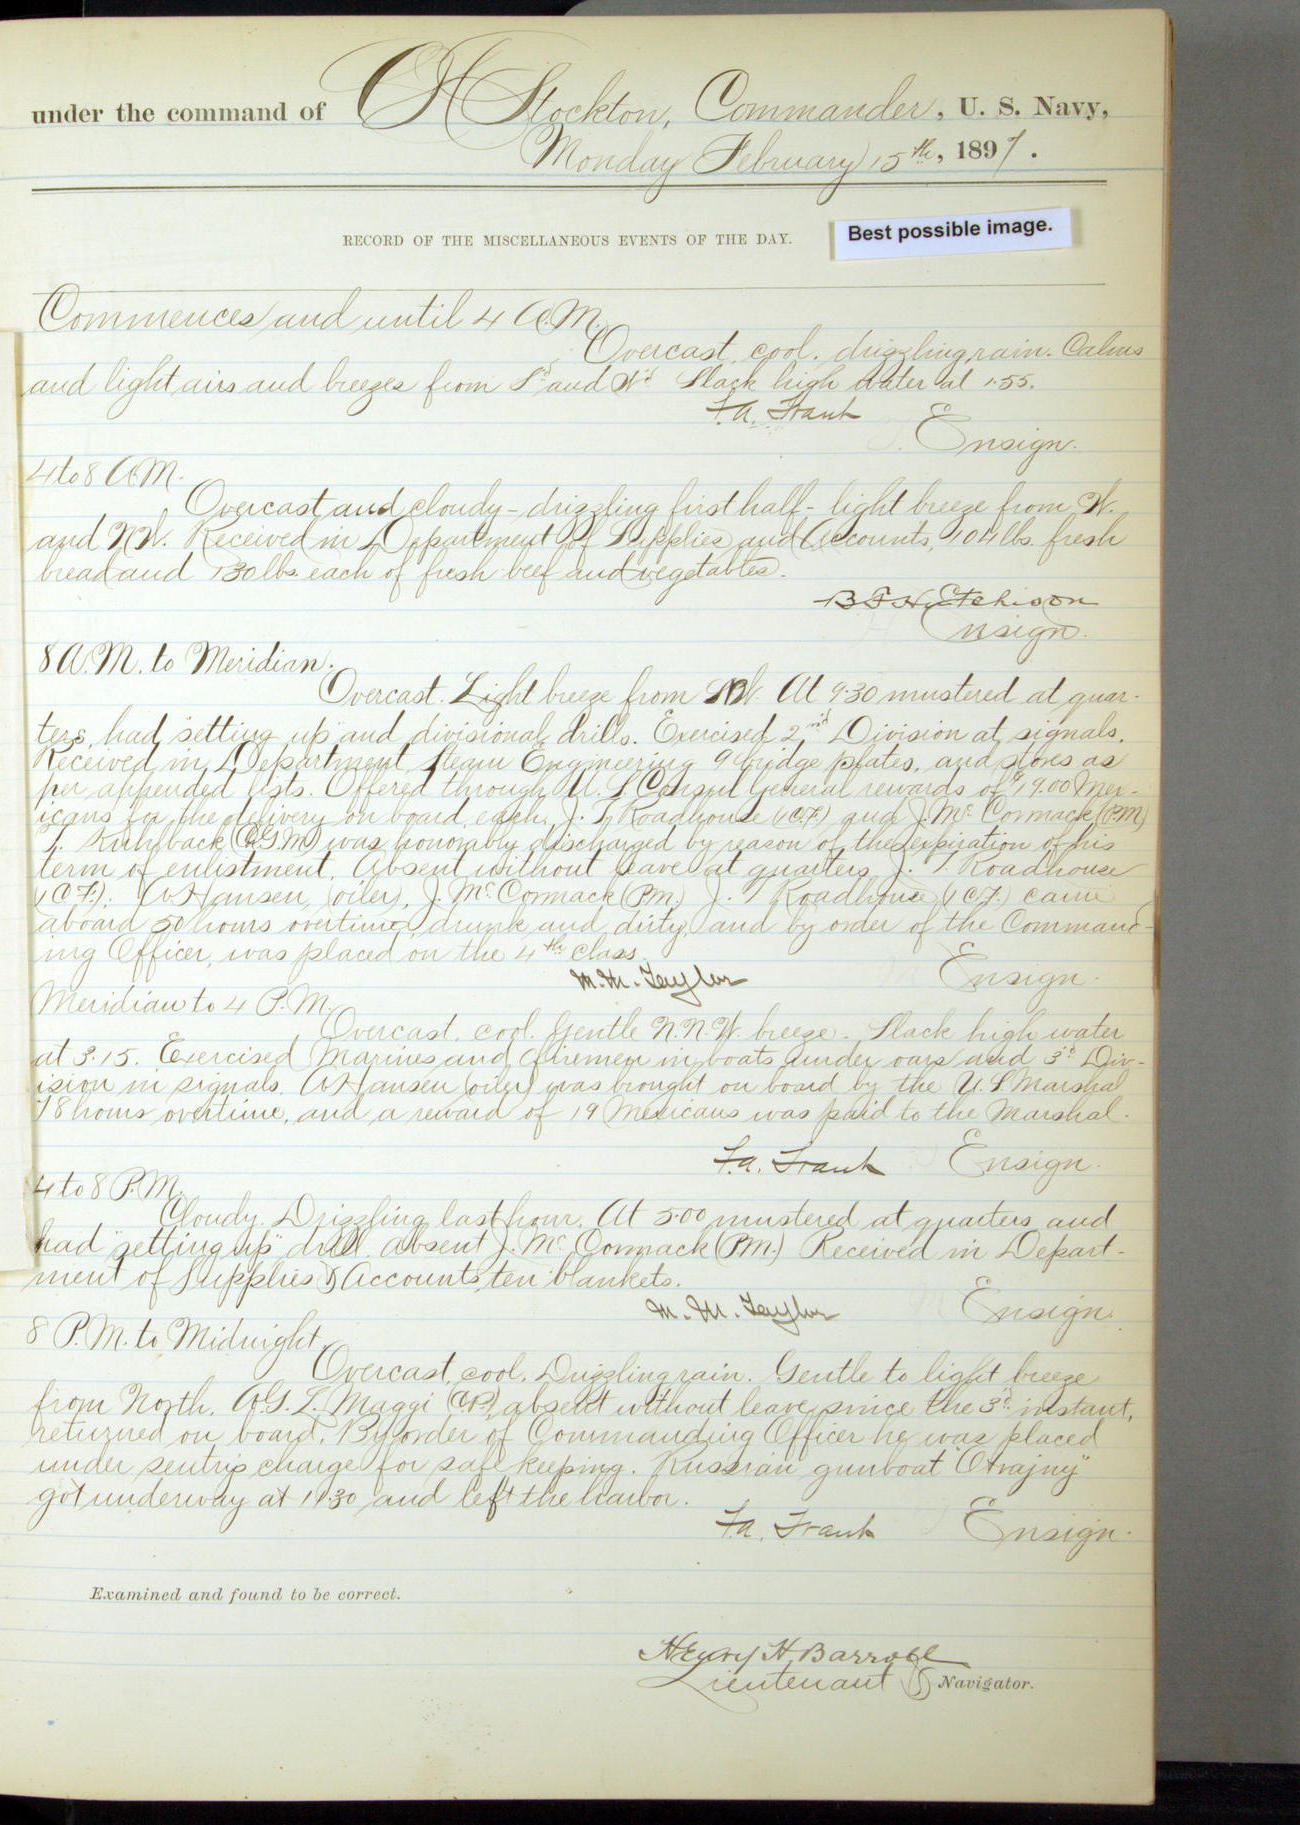 under the command of C H Stockton, Commander, U. S. Navy,
Monday February 15th, 1897.
RECORD OF THE MISCELLANEOUS EVENTS OF THE DAY.
Best possible image.
Commences and until 4 A.M.
Overcast, cool, drizzling rain. Calms
and light airs and breezes from Sd and Wd Slack high water at 1.55.
F.A. Traut
Ensign.
4 to 8 A.M.
Overcast and cloudy - drizzling first half - light breeze from W.
and NW. Received in Department of Supplies and Accounts, 104 lbs. fresh
bread and 130 lbs. each of fresh beef and vegetables.
B F Hutchison
Ensign.
8 A.M. to Meridian.
Overcast. Light breeze from W. At 9.30 mustered at quar-
ters, had "setting up" and divisional drills. Exercised 2nd Division at signals.
Received in Department Steam Engineering 9 bridge plates, and stores as
per appended lists. Offered through U.S. Consul General rewards of $19.00 Mex-
icans for the delivery on board, each, J. T. Roadhouse (1 C.F.) and J. McCormack (P.M.)
T. Kuhlback (C.G.M.) was honorably discharged by reason of the expiration of his
term of enlistment. Absent without leave at quarters J. T. Roadhouse
(1 C.F.). A Hansen (oiler), J. McCormack (P.M.) J. T Roadhouse (1 C.F.) came
aboard 50 hours overtime, drunk and dirty, and by order of the Command-
ing Officer, was placed on the 4th class.
M. M. Taylor Ensign.
Meridian to 4 P.M.
Overcast, cool. Gentle N.N.W. breeze. Slack high water
at 3.15. Exercised Marines and firemen in boats under oars and 3d Div-
ision in signals. A Hansen (oiler) was brought on board by the U.S. Marshal
78 hours overtime, and a reward of 19 Mexicans was paid to the Marshal.
F.A. Traut Ensign.
4 to 8 P.M.
Cloudy. Drizzling last hour. At 5.00 mustered at quarters and
had "setting up" drill. absent J. McCormack (P.M.) Received in Depart-
ment of Supplies & Accounts, ten blankets.
M. M. Taylor Ensign.
8 P.M. to Midnight.
Overcast, cool. Drizzling rain. Gentle to light breeze
from North. A.G.L. Maggi absent without leave since the 3d instant,
returned on board. By order of Commanding Officer he was placed
under sentry's charge for safe keeping. Russian gunboat "Otvajny"
got underway at 11.30 and left the harbor.
F.A. Traut Ensign.
Examined and found to be correct.
Henry H. Barroll
Lieutenant & Navigator.